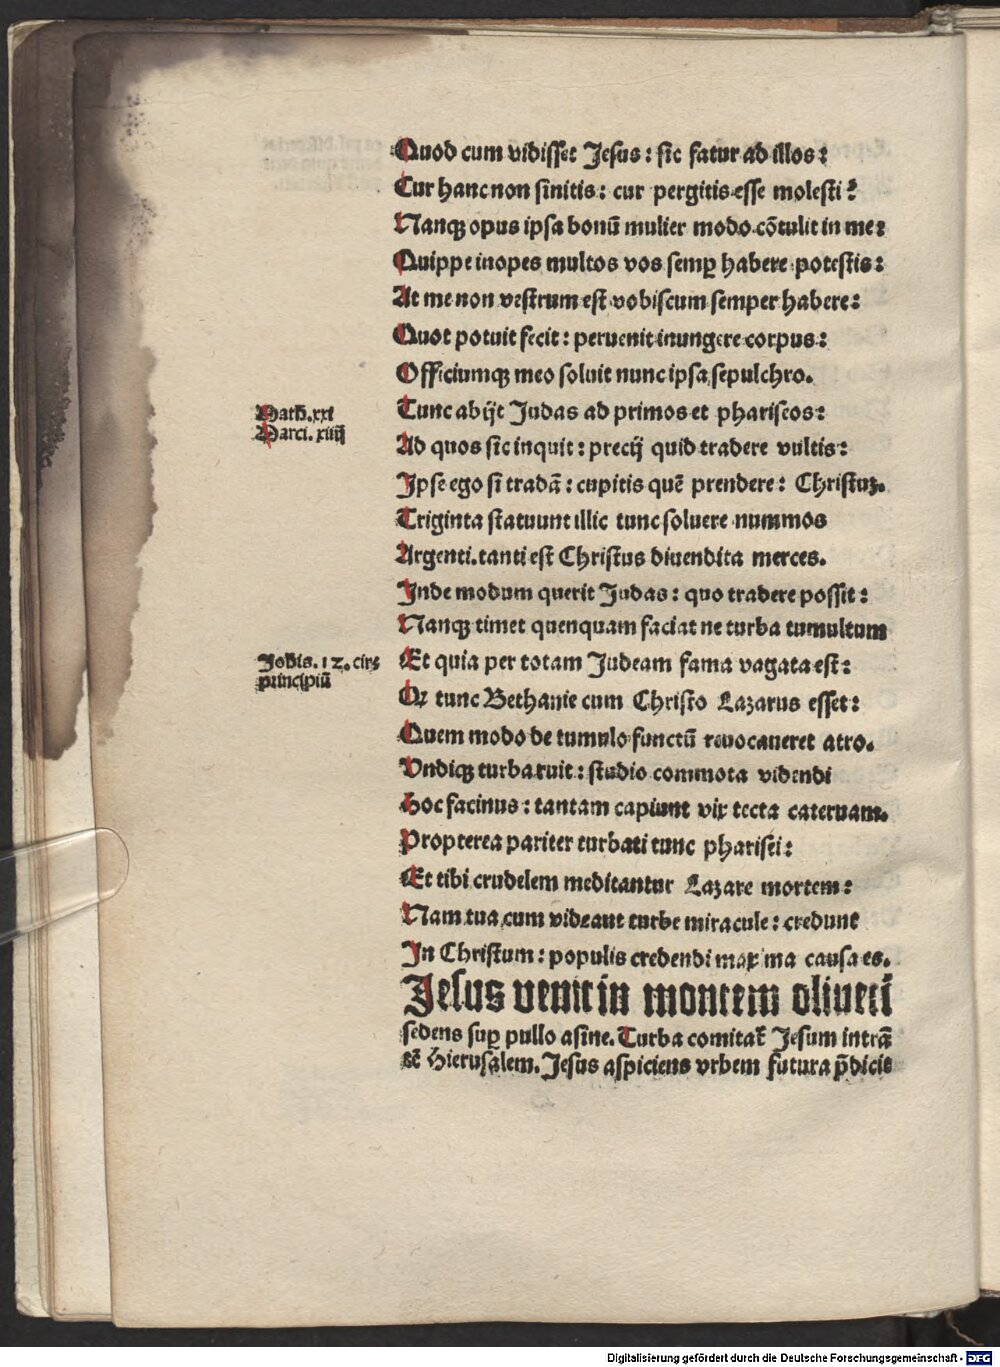 Quod cum vidisset Jesus : sic fatur ad illos :
Cur hanc non sinitis : cur pergitis esse molesti ?
Nanqꝫ opus ipsa bonū mulier modo cōtulit in me :
Quippe inopes multos vos semꝑ habere potestis :
At me non vestrum est vobiscum semper habere :
Quot potuit fecit : peruenit inungere corpus :
Officiumqꝫ meo soluit nunc ipsa sepulchro.
Tunc abijt Judas ad primos et phariseos :
Ad quos sic inquit : precij quid tradere vultis :
Ipse ego si tradā : cupitis quē prendere : Christuꝫ.
Triginta statuunt illic tunc soluere nummos
Argenti. tanti est Christus diuendita merces.
Inde modum querit Judas : quo tradere possit :
Nanqꝫ timet quenquam faciat ne turba tumultum
Et quia per totam Judeam fama vagata est :
Qꝛ tunc Bethanie cum Christo Lazarus esset :
Quem modo de tumulo functū reuocaueret atro.
Vndiqꝫ turba ruit : studio commota videndi
Hoc facinus : tantam capiunt vix tecta cateruam.
Propterea pariter turbati tunc pharisei :
Et tibi crudelem meditantur Lazare mortem :
Nam tua cum videant turbe miracule : credunt
In Christum : populis credendi maxima causa es.
Jesus venit in montem oliueti
sedens suꝑ pullo asine. Turba comitat᷑ Jesum intrā
tē Hierusalem. Jesus aspiciens vrbem futura p̄dicit
Math. xxi
Marci. xiiij
Johis. 12. circa
principiū
Digitalisierung gefördert durch die Deutsche Forschungsgemeinschaft - DFG